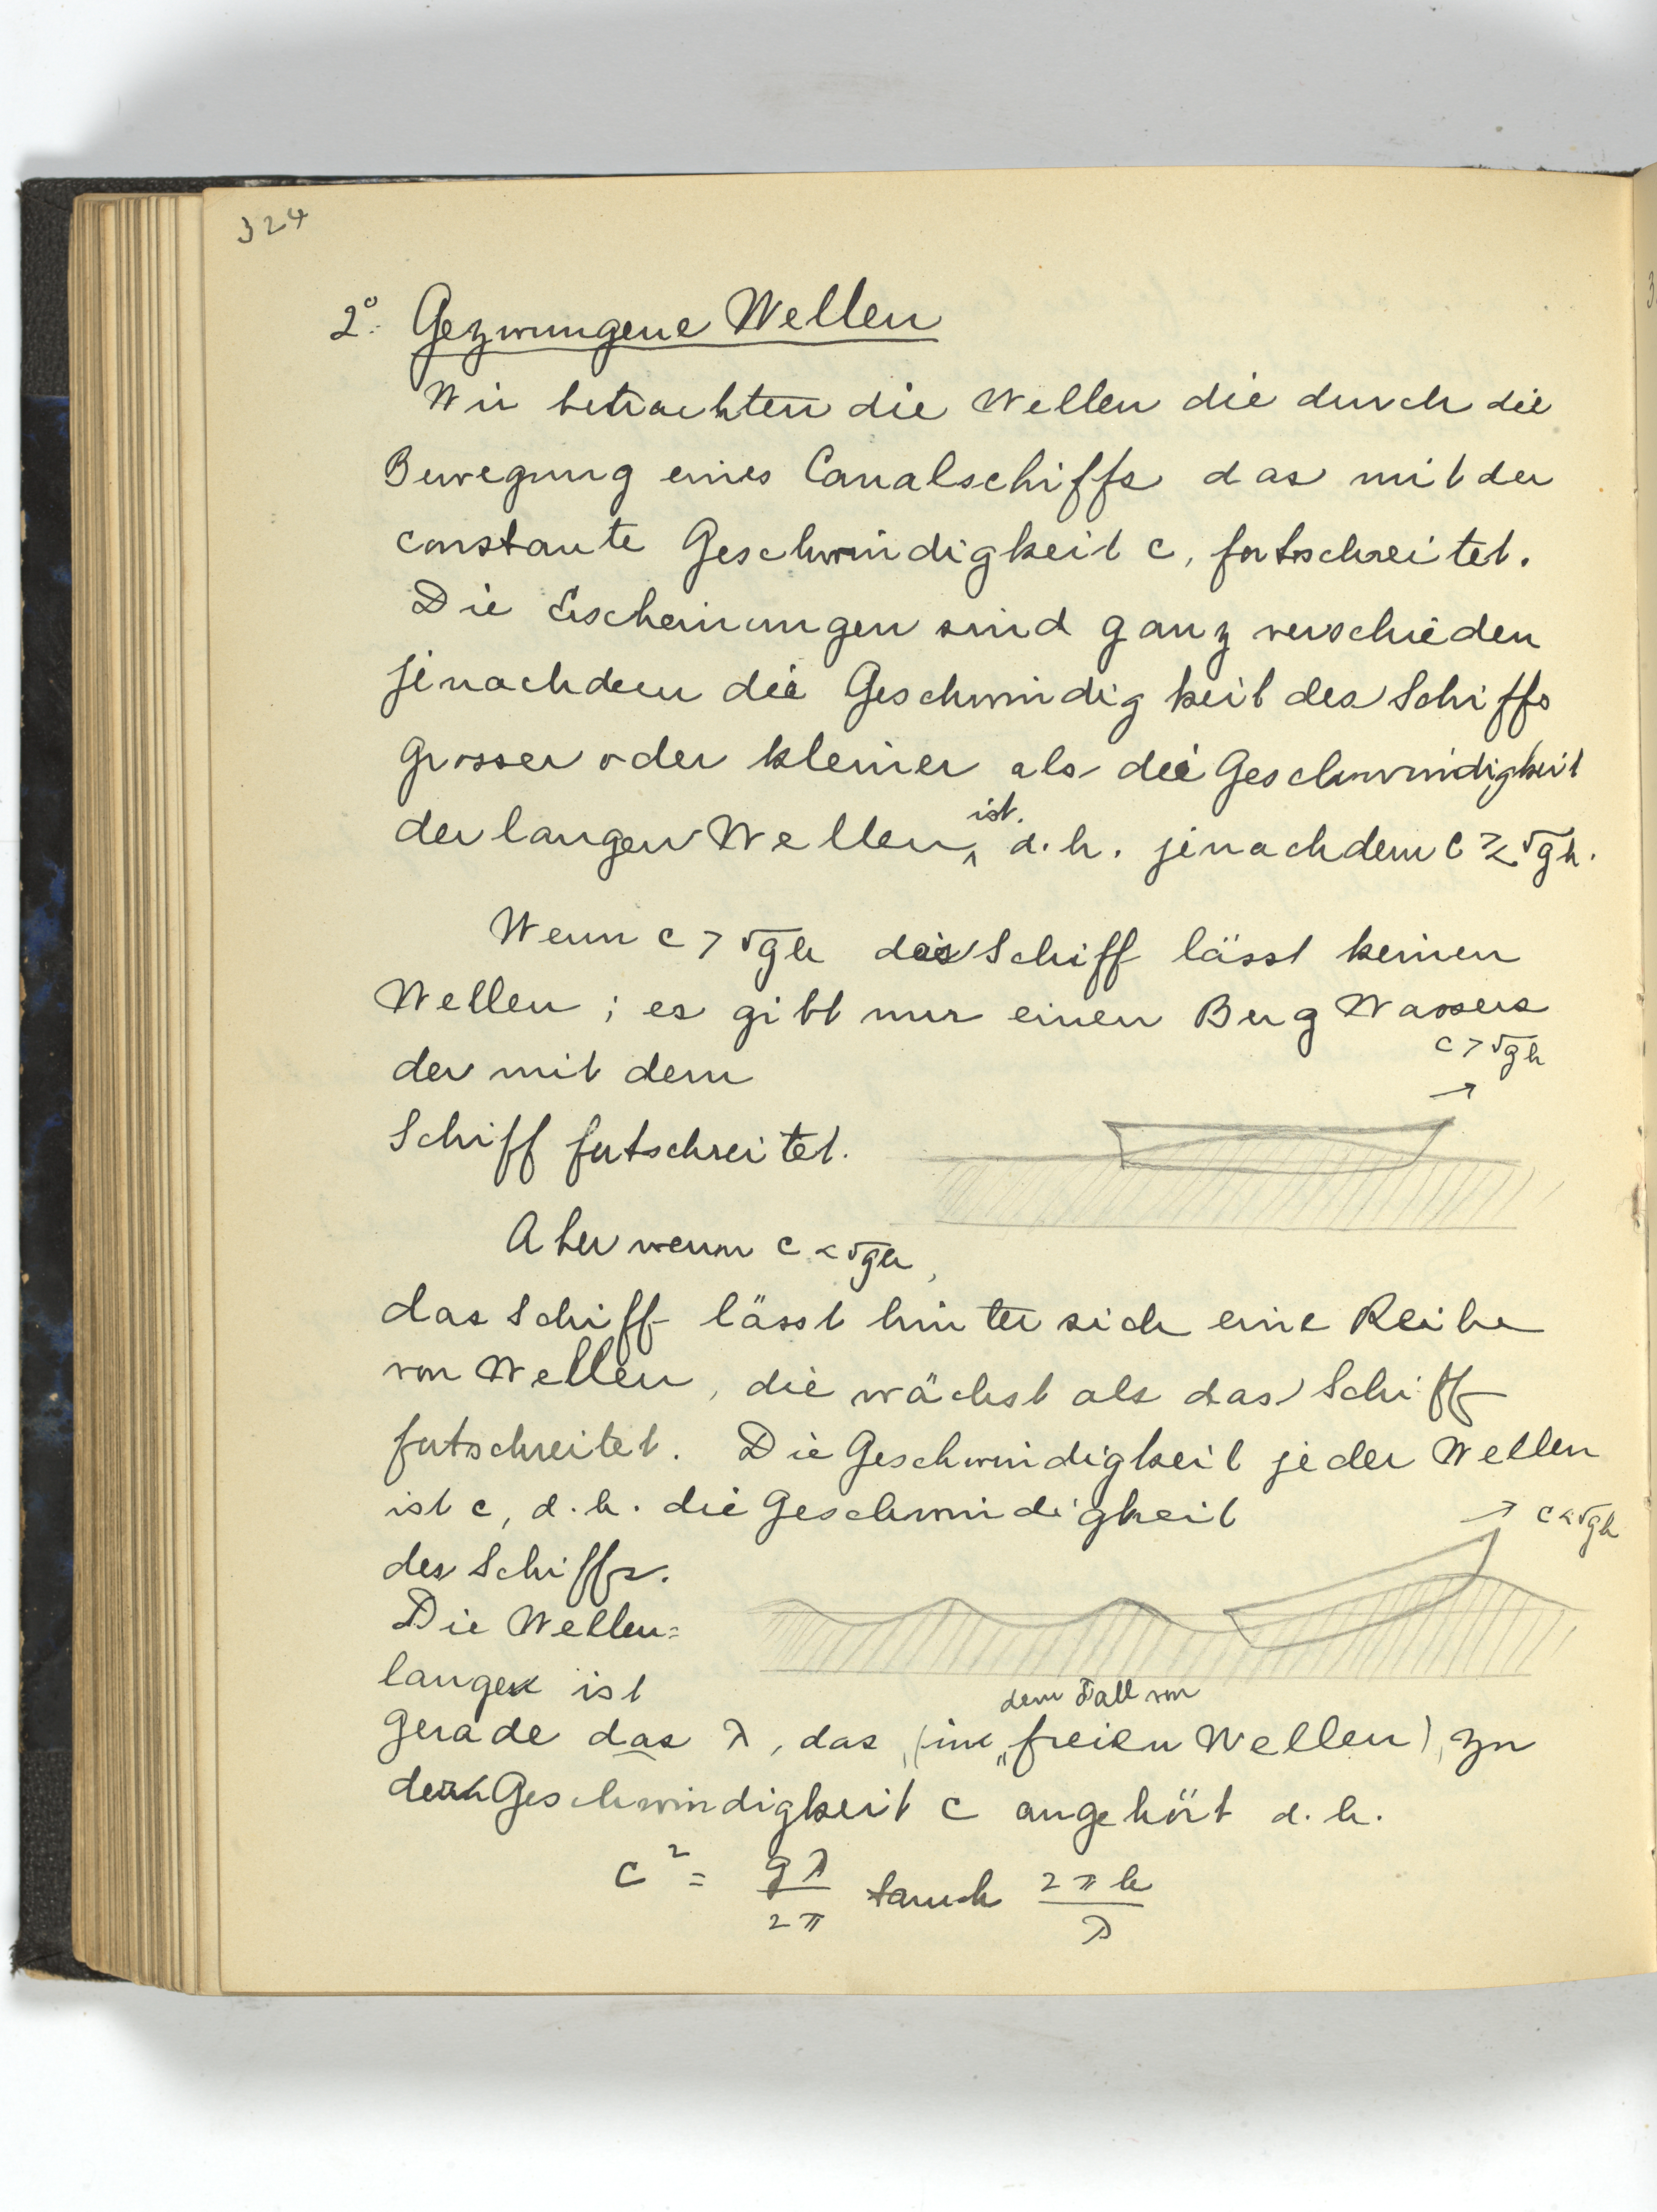 324
2º. Gezwungene Wellen
Wir betrachten die Wellen die durch die
Bewegung eines Canalschiffs das mit der
constante Geschwindigkeit c, fortschreitet.
Die Erscheinungen sind ganz verschieden
jenachdem die Geschwindigkeit des Schiffs
grosser oder kleiner als die Geschwindigkeit
der langen Wellen ist. d.h. jenachdem c ≷ √gh.
Wenn c > √gh das Schiff lässt keinen
Wellen; es gibt nur einen Berg Wassers
c > √gh
der mit dem
Schiff fortschreitet.
Aber wenn c < √gh,
das Schiff lässt hinter sich eine Reihe
von Wellen, die wächst als das Schiff
fortschreitet. Die Geschwindigkeit jeder Wellen
ist c, d.h. die Geschwindigkeit
c < √gh
des Schiffs.
Die Wellen=
lange ist
gerade das λ, das, (im dem Fall von freien Wellen), zu
der Geschwindigkeit c angehört d.h.
c² = gλ/2π tanh 2πh/λ